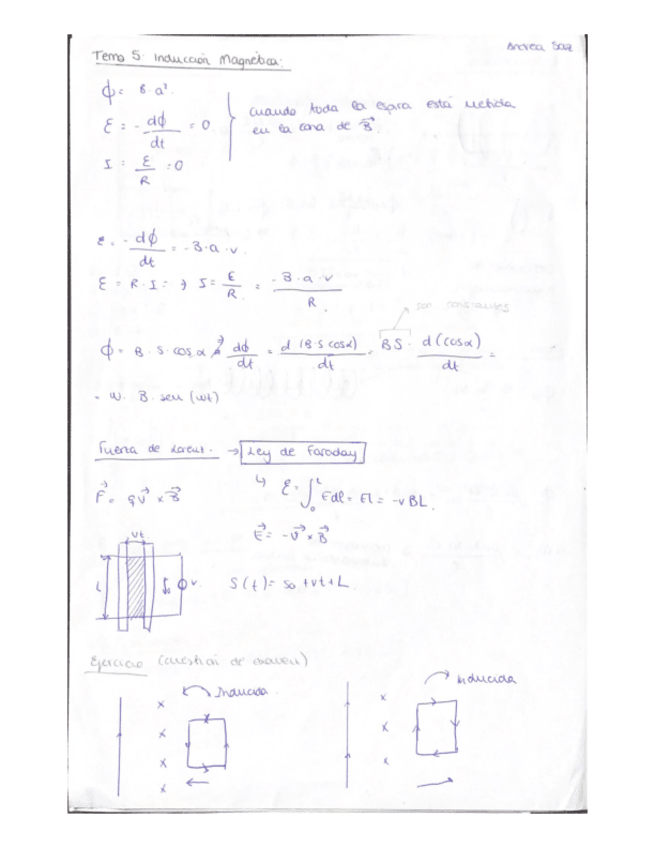 Andrea Saz
Tema 5: Inducción Magnética:
ϕ = B · a².
ε = - dϕ/dt = 0
I = ε/R = 0
cuando toda la espira está metida
en la zona de B⃗.
ε = - dϕ/dt = - B · a · v.
ε = R · I = → I = ε/R = - B · a · v / R.
son constantes
ϕ = B · S · cos α → dϕ/dt = d (B·S cosα)/dt = BS · d (cosα)/dt =
= w · B · sen (wt)
Fuerza de Lorent. → Ley de Faraday
F⃗ = qv⃗ × B⃗
↳ ε = ∫₀ᴸ Edl = El = -vBL.
E⃗ = -v⃗ × B⃗
vt
L
v.
S(t) = so + vt + L
Ejercicio (cuestión de examen)
Inducida
inducida
x
x
x
x
x
x
x